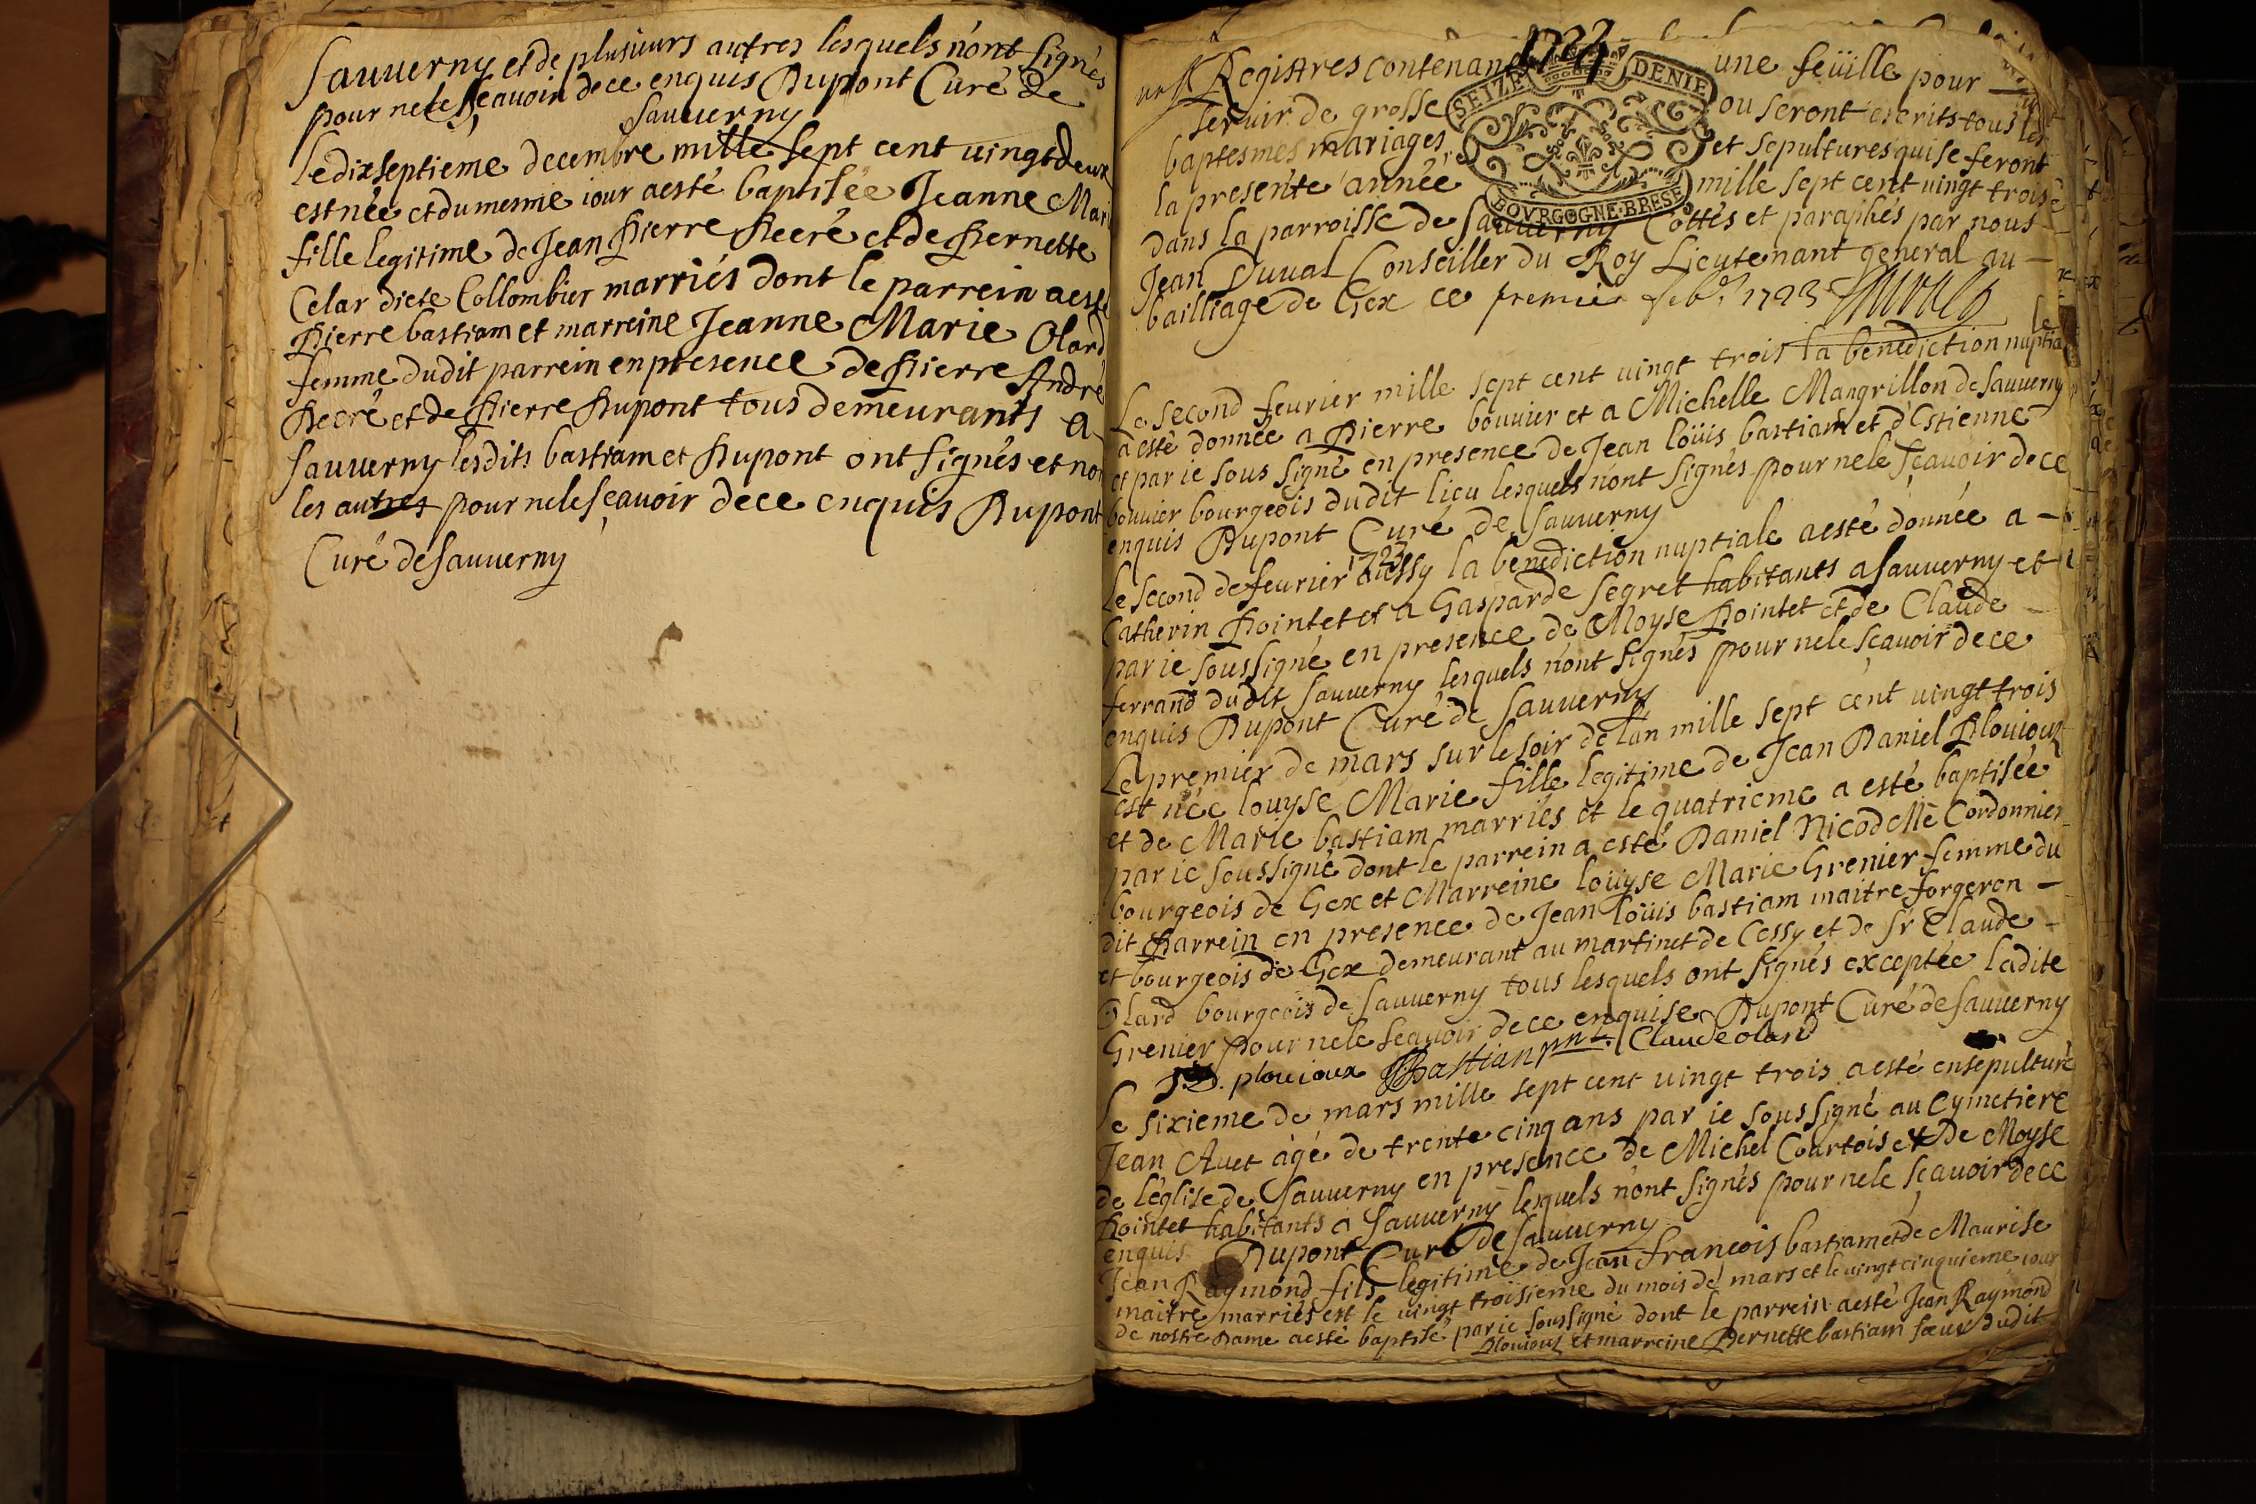 Sauverny et de plusieurs autres lesquels n'ont signés
pour ne le sçavoir de ce enquis Dupont Curé de
Sauverny
Le dixseptieme decembre mille sept cent vingt deux
est née et du mesme iour a esté baptisée Jeanne Mari
fille legitime de Jean Pierre Pecré et de Pernette
Celar dicte Collombier marriés dont le parrein a esté
Pierre bastiam et marreine Jeanne Marie Olard
femme dudit parrein en presence de Pierre André
Pecré et de Pierre Dupont tous demeurants a
Sauverny lesdits bastiam et Dupont ont signés et non
les autres pour ne le sçavoir de ce enquis Dupont
Curé de Sauverny
1723
SEIZE DENIE
BOVRGOGNE·BRESE
Registres contenant une feüille pour
servir de grosse ou seront escrits tous les
baptesmes mariages et sepultures qui se feront
la presente année mille sept cent vingt trois
dans la parroisse de Sauverny Cottés et paraphés par nous
Jean Duval Conseiller du Roy Lieutenant general au
bailliage de Gex ce premier feb. 1723 Duval
Le second feurier mille sept cent vingt trois la benediction nuptiale
a esté donnée a Pierre bouvier et a Michelle Mangrillon de Sauverny
et par ie sous signé en presence de Jean loüis bastiam et d'Estienne
bouvier bourgeois dudit lieu lesquels n'ont signés pour ne le sçavoir de ce
enquis Dupont Curé de Sauverny
1723
Le second de feurier aussy la benediction nuptiale a esté donnée a
Catherin Pointet et a Gasparde segret habitants a Sauverny et
par ie soussigné en presence de Moyse Pointet et de Claude
ferrand dudit Sauverny lesquels n'ont signés pour ne le sçavoir de ce
enquis Dupont Curé de Sauverny
Le premier de mars sur le soir de l'an mille sept cent vingt trois
est née louyse Marie fille legitime de Jean Daniel Plouioux
et de Marie bastiam marriés et le quatrieme a esté baptisée
par ie soussigné dont le parrein a esté Daniel Nicod Me Cordonnier
bourgeois de Gex et Marreine loüyse Marie Grenier femme du
dit Parrein en presence de Jean loüis bastiam maitre forgeron
et bourgeois de Gex demeurant au martinet de Cessy et de Sr Claude
Olard bourgeois de Sauverny tous lesquels ont signés exceptée ladite
Grenier pour ne le sçavoir de ce enquise Dupont Curé de Sauverny
J.D. plouioux Bastian Claude olard
Le sixieme de mars mille sept cent vingt trois a esté ensepulturé
Jean Avet àgé de trente cinq ans par ie soussigné au Cymetiere
de l'église de Sauverny en presence de Michel Courtois et De Moyse
Pointet habitants a Sauverny lesquels n'ont signés pour ne le sçavoir de ce
enquis Dupont Curé de Sauverny
Jean Raymond fils legitime de Jean francois bastiam et de Maurise
maitre marriés est le vingt troisieme du mois de mars et le vingt cinquieme iour
de nostre Dame a esté baptisé par ie soussigné dont le parrein a esté Jean Raymond
Plouioux et marreine Pernette bastiam sœur dudit